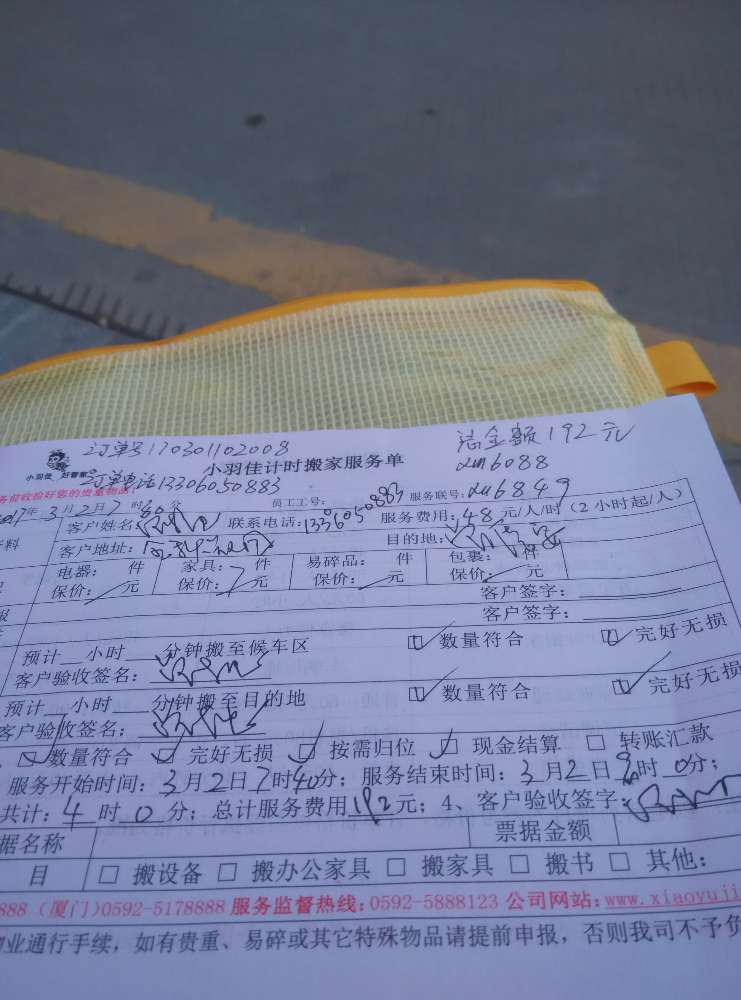 订单号170301102008
总金额192元
小羽佳 好管家
小羽佳计时搬家服务单
订单电话13306050883
员工工号:
服务联号:
2017年3月2日7时30分
客户姓名: 联系电话:13306050883 服务费用:48元/人/时(2小时起/人)
客户地址: 目的地:
电器: 件 家具: 件 易碎品: 件 包裹: 件
保价: 元 保价: 元 保价: 元 保价: 元
客户签字:
客户签字:
预计 小时 分钟搬至候车区 数量符合 完好无损
客户验收签名:
预计 小时 分钟搬至目的地 数量符合 完好无损
客户验收签名:
数量符合 完好无损 按需归位 现金结算 转账汇款
服务开始时间:3月2日7时40分;服务结束时间:3月2日 时0分;
共计:4时0分;总计服务费用192元;4、客户验收签字:
据名称 票据金额
目 搬设备 搬办公家具 搬家具 搬书 其他:
888(厦门)0592-5178888 服务监督热线:0592-5888123 公司网站:www.xiaoyuji
业通行手续,如有贵重、易碎或其它特殊物品请提前申报,否则我司不予负